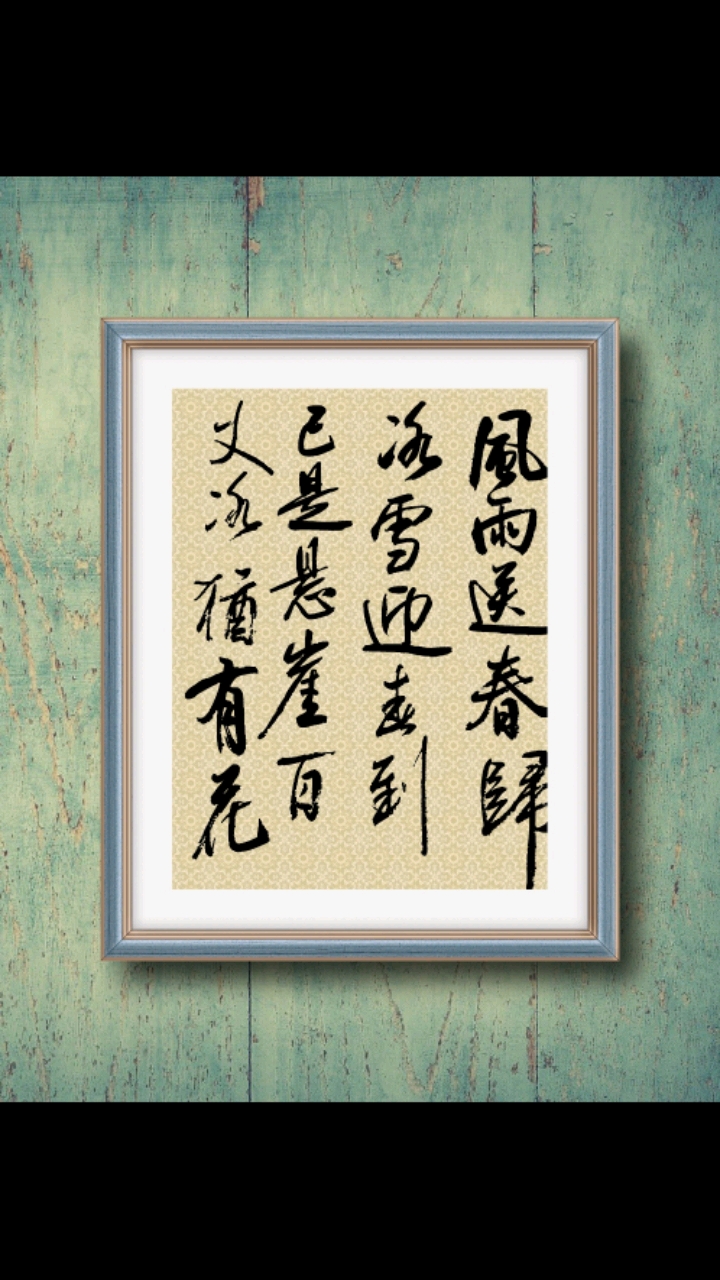 風雨送春歸
冰雪迎春到
已是悬崖百
丈冰猶有花